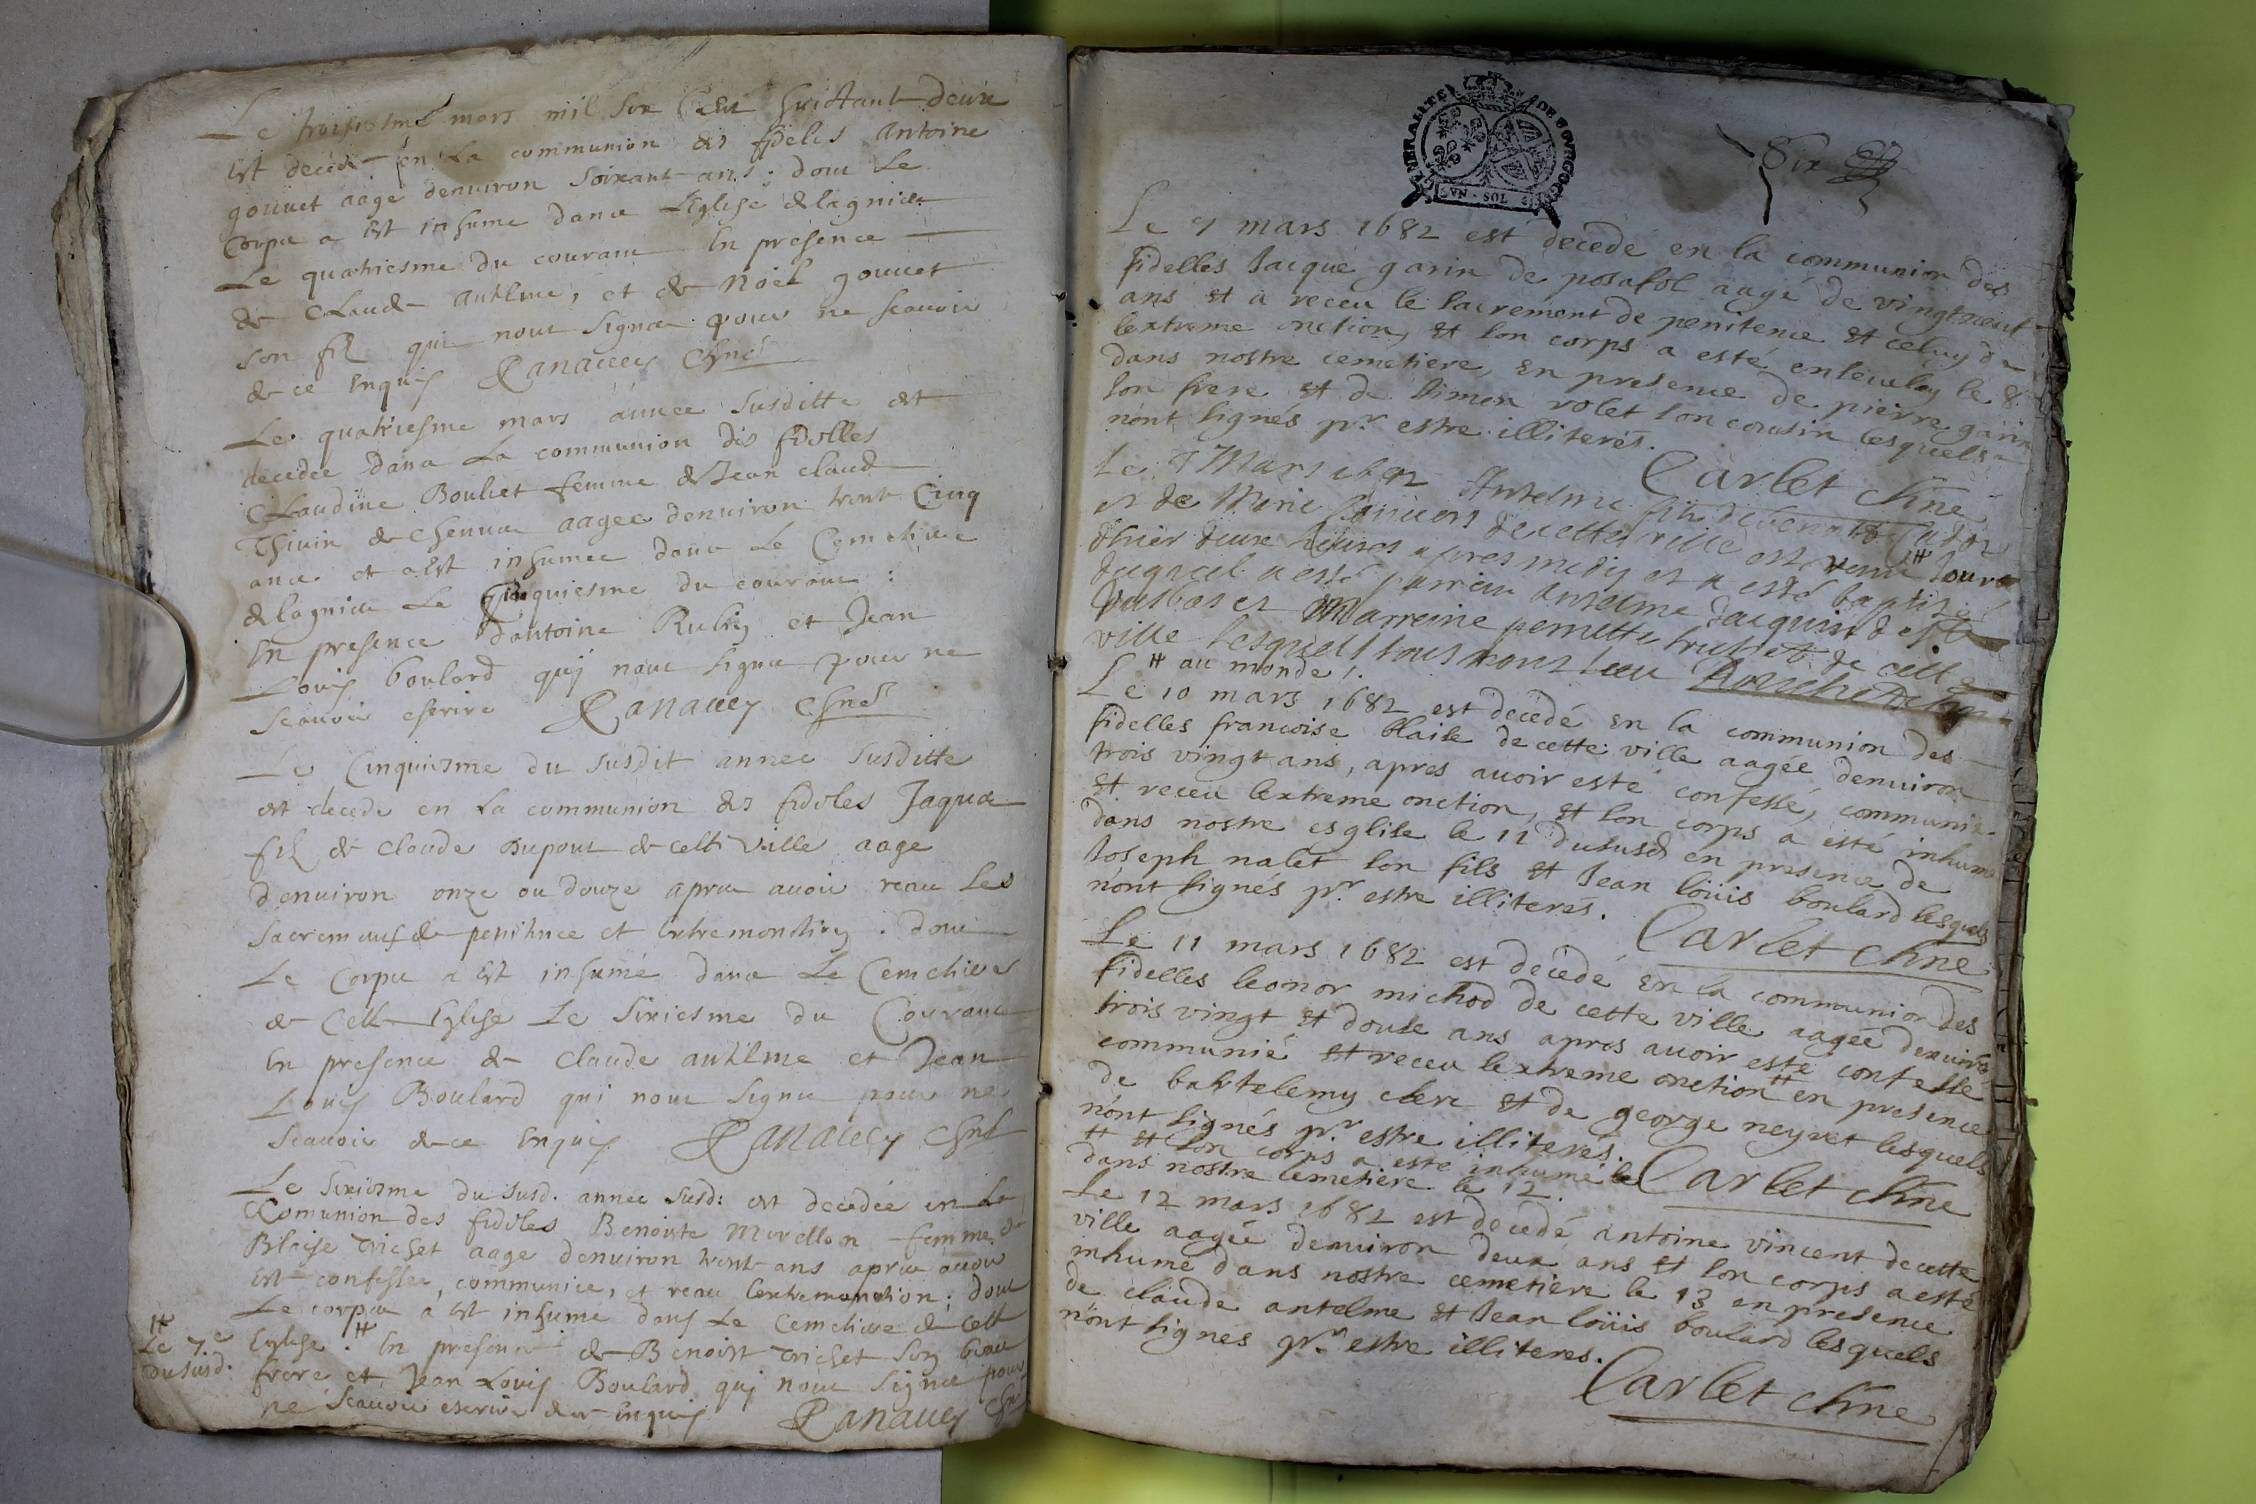 Le troisiesme mars mil six Cent huictant deux
est decedé en La communion des fideles antoine
gouuet aagé denuiron soixant ans. dont Le
Corps a est inhumé dans Leglise de lagnieu
Le quatriesme du courant En présence
de Claude antelme, et de Noël gouuet
son fils qui nont signé pour ne scauoir
de ce Enquis Panauey Chne
Le quatriesme mars année susditte est
décédée dans La communion des fidelles
Claudine Bouliet femme de Jean claude
Thiuin de Chenua aagee denuiron trente Cinq
ans et a est inhumee dans Le Cemetiere
de lagnieu Le cinquiesme du courant :
En presence dantoine Rubin et Jean
Louis boulard quj nont signé pour ne
scauoir escrire Panauey Chne
Le Cinquiesme du susdit annee susditte
est decedé en La communion des fideles Jaques
fils de Claude Dupont de cette ville aage
denuiron onze ou douze apres auoir receu Les
sacremens de penitence et Extremonction. dont
Le Corps a est inhumé dans Le Cemetiere
de Cette Eglise Le sixiesme du Courant
En presence de Claude antelme et Jean
Louis Boulard qui nont signé pour ne
scauoir de ce Enquis Panauey Chne
Le sixiesme du susd. annee susd: est decedée en La
Comunion des fideles Benoiste Morellon femme de
Blaise Trichet aage denuiron trent ans apres auoir
est confessée, communiee, et receu Lextremonction; dont
Le corps a est inhumé dans Le Cemetiere de Cette
Eglise # En presence de Benoist Trichet son beau
frere et Jean Louis Boulard quj nont signé pour
ne scauoir escrire de ce Enquis Panauey Chne
#
Le 7e
du susd.
GENERALITE DE BOVRGOGNE
VN · SOL
Six
Le 7 mars 1682 est décedé en la communion des
fidelles Jacque garin de posafol aagé de vingtneuf
ans et a receu le sacrement de penitence et celuy de
lextreme onction, et son corps a esté enseuely le 8.
dans nostre cemetiere, en presence de pierre garin
son frere et de simon rolet son cousin lesquels
nont signés pr. estre illiterés. Carlet Chne
Le Mars 1682 Antelme fils de benoist
et de Marie de cette ville est venu # Jour
dhier deux heures apres midy et a esté baptisé
duquel a esté parrein Antelme Jacquin
et Marreine pernette de cette
ville lesquels
# au monde /.
Le 10 mars 1682 est décédé en la communion des
fidelles francoise blaise de cette ville aagée denuiron
trois vingt ans, apres auoir esté confessé, communié
et receu lextreme onction, et son corps a esté inhumé
dans nostre esglise le 11 du susd en presence de
Joseph nalet son fils et Jean loüis boulard lesquels
nont signés pr. estre illiterés. Carlet Chne
Le 11 mars 1682 est décédé en la communion des
fidelles leonor michod de cette ville aagée denuiron
trois vingt et douse ans apres auoir esté confessé
communié et receu lextreme onction # en presence
de bartelemy clerc et de george neyret lesquels
nont signés pr. estre illiterés.
# et son corps a esté inhumé
dans nostre cemetiere le 12. Carlet Chne
Le 12 mars 1682 est décédé antoine vincent de cette
ville aagée denuiron deux ans et son corps a esté
inhumé dans nostre cemetiere le 13 en presence
de claude antelme et Jean loüis boulard lesquels
nont signes pr. estre illiteres.
Carlet Chne